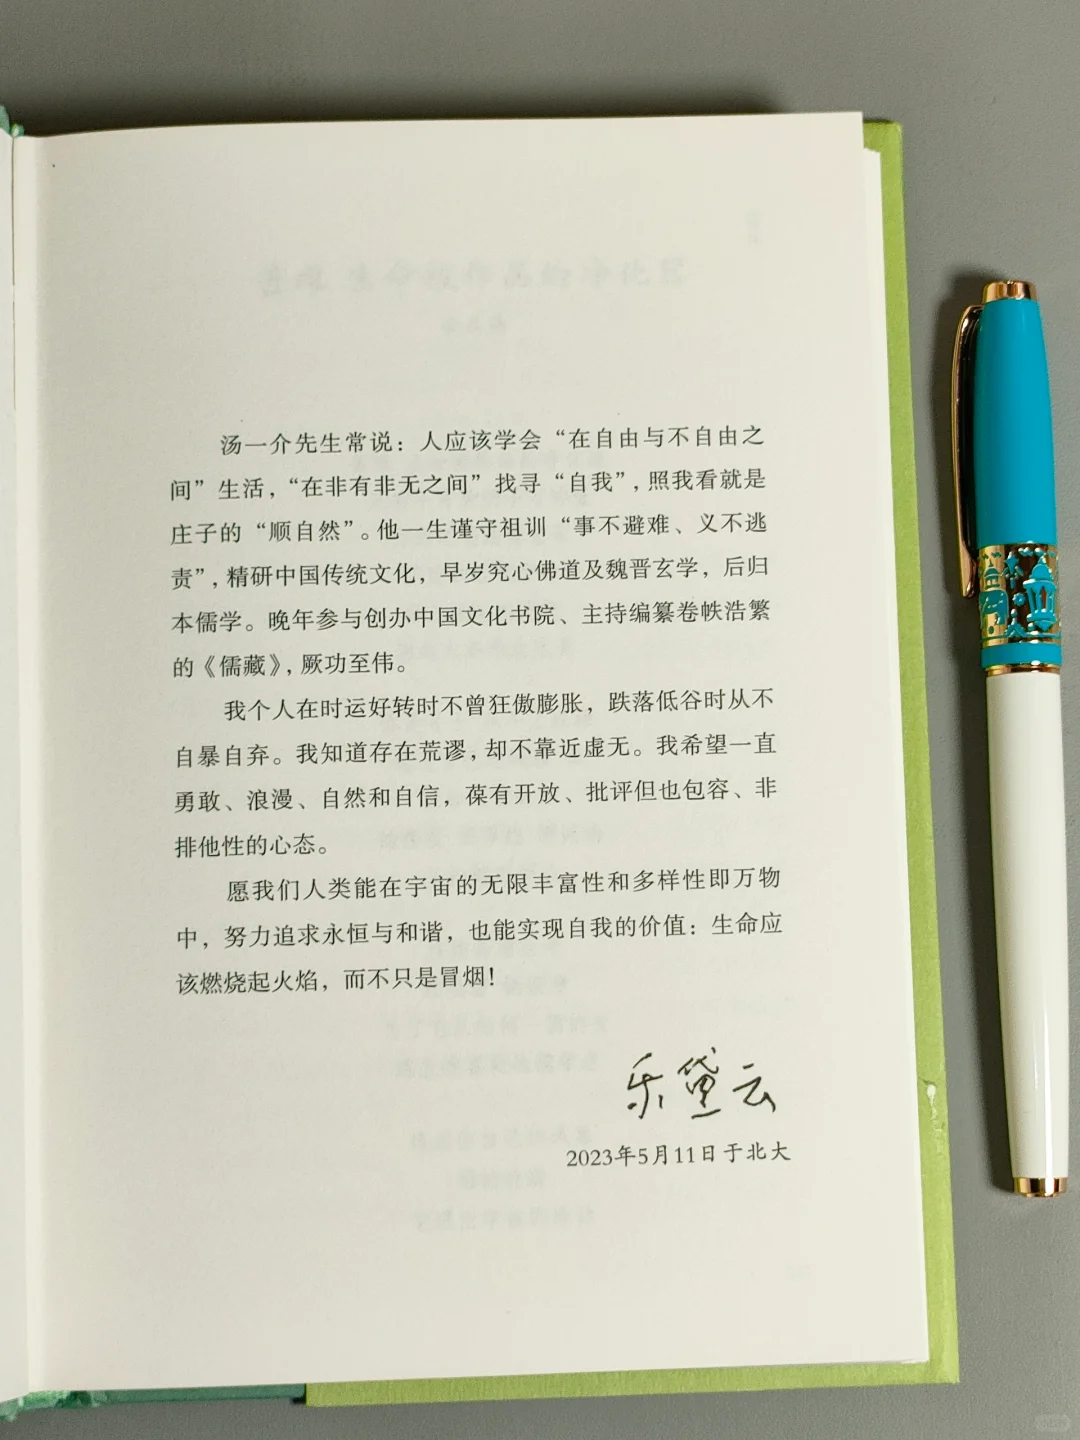 汤一介先生常说：人应该学会“在自由与不自由之
间”生活，“在非有非无之间”找寻“自我”，照我看就是
庄子的“顺自然”。他一生谨守祖训“事不避难、义不逃
责”，精研中国传统文化，早岁究心佛道及魏晋玄学，后归
本儒学。晚年参与创办中国文化书院、主持编纂卷帙浩繁
的《儒藏》，厥功至伟。
我个人在时运好转时不曾狂傲膨胀，跌落低谷时从不
自暴自弃。我知道存在荒谬，却不靠近虚无。我希望一直
勇敢、浪漫、自然和自信，葆有开放、批评但也包容、非
排他性的心态。
愿我们人类能在宇宙的无限丰富性和多样性即万物
中，努力追求永恒与和谐，也能实现自我的价值：生命应
该燃烧起火焰，而不只是冒烟！
乐黛云
2023年5月11日于北大